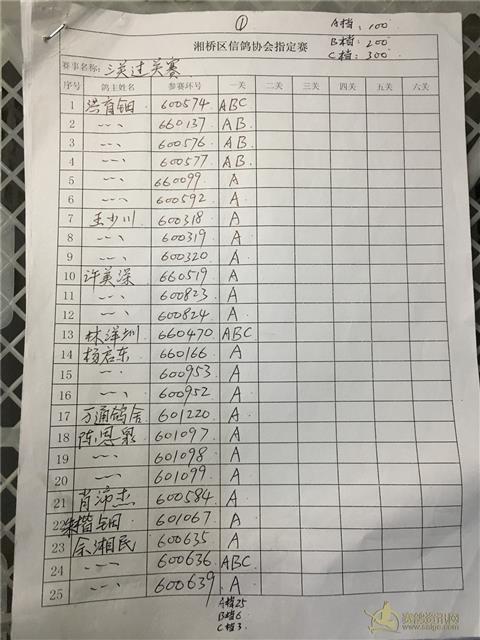 ①
A档:100
B档:200
C档:300
湘桥区信鸽协会指定赛
赛事名称:三关过关赛
序号 鸽主姓名 参赛环号 一关 二关 三关 四关 五关 六关
1 洪育钿 600574 ABC
2 一一、 660137 AB
3 一一、 600576 AB
4 一一、 600577 AB
5 一一、 660099 A
6 一一、 600592 A
7 王少川 600318 A
8 一一、 600319 A
9 一一、 600320 A
10 许英深 660519 A
11 一一、 600823 A
12 一一、 600824 A
13 林洋圳 660470 ABC
14 杨启东 660166 A
15 一一、 600953 A
16 一一、 600952 A
17 万通鸽舍 601220 A
18 陈恩泉 601097 A
19 一一、 601098 A
20 一一、 601099 A
21 肖沛杰 600584 A
22 楷钿 601067 A
23 余湘民 600635 A
24 一一、 600636 ABC
25 一一、 600639 A
A档25
B档6
C档3
赛鸽资讯网
www.saige.com